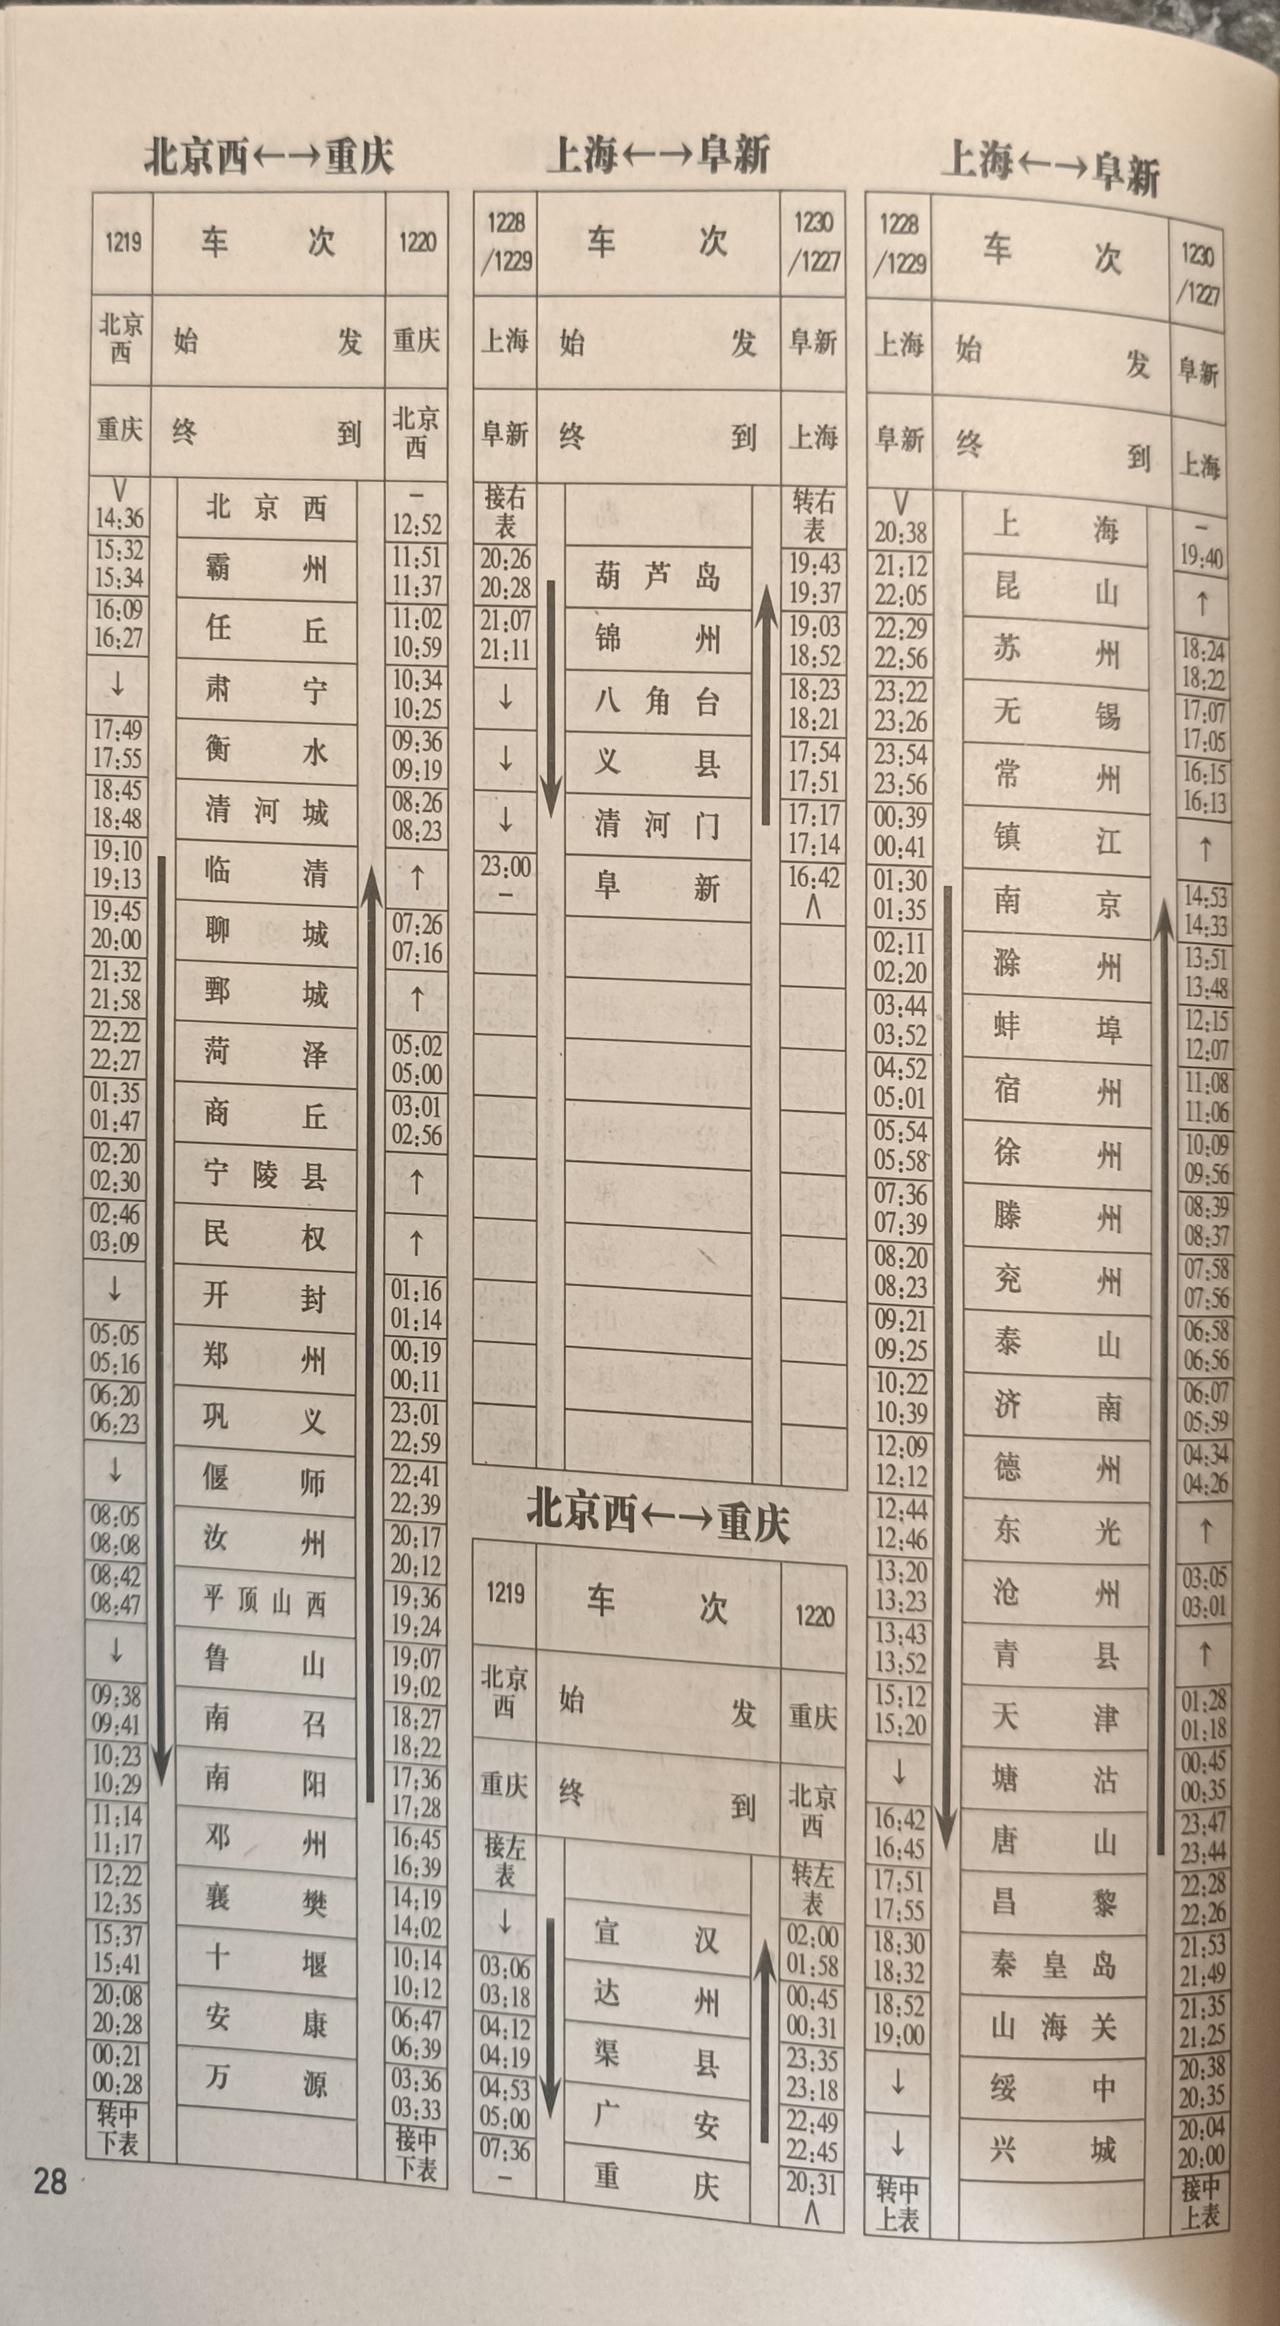 北京西←→重庆
1219 车次 1220
北京西 始发 重庆
重庆 终到 北京西
V 北京西 –
14:36 12:52
15:32 霸州 11:51
15:34 11:37
16:09 任丘 11:02
16:27 10:59
↓ 肃宁 10:34
10:25
17:49 衡水 09:36
17:55 09:19
18:45 清河城 08:26
18:48 08:23
19:10 临清 ↑
19:13
19:45 聊城 07:26
20:00 07:16
21:32 鄄城 ↑
21:58
22:22 菏泽 05:02
22:27 05:00
01:35 商丘 03:01
01:47 02:56
02:20 宁陵县 ↑
02:30
02:46 民权 ↑
03:09
↓ 开封 01:16
01:14
05:05 郑州 00:19
05:16 00:11
06:20 巩义 23:01
06:23 22:59
↓ 偃师 22:41
22:39
08:05 汝州 20:17
08:08 20:12
08:42 平顶山西 19:36
08:47 19:24
↓ 鲁山 19:07
19:02
09:38 南召 18:27
09:41 18:22
10:23 南阳 17:36
10:29 17:28
11:14 邓州 16:45
11:17 16:39
12:22 襄樊 14:19
12:35 14:02
15:37 十堰 10:14
15:41 10:12
20:08 安康 06:47
20:28 06:39
00:21 万源 03:36
00:28 03:33
转中下表 接中下表
28
上海←→阜新
1228/1229 车次 1230/1227
上海 始发 阜新
阜新 终到 上海
接右表 转右表
20:26 葫芦岛 19:43
20:28 19:37
21:07 锦州 19:03
21:11 18:52
↓ 八角台 18:23
18:21
↓ 义县 17:54
17:51
↓ 清河门 17:17
17:14
23:00 阜新 16:42
– Λ
北京西←→重庆
1219 车次 1220
北京西 始发 重庆
重庆 终到 北京西
接左表 转左表
↓ 宣汉 02:00
01:58
03:06 达州 00:45
03:18 00:31
04:12 渠县 23:35
04:19 23:18
04:53 广安 22:49
05:00 22:45
07:36 重庆 20:31
– Λ
上海←→阜新
1228/1229 车次 1230/1227
上海 始发 阜新
阜新 终到 上海
V 上海 –
20:38 19:40
21:12 昆山 ↑
22:05
22:29 苏州 18:24
22:56 18:22
23:22 无锡 17:07
23:26 17:05
23:54 常州 16:15
23:56 16:13
00:39 镇江 ↑
00:41
01:30 南京 14:53
01:35 14:33
02:11 滁州 13:51
02:20 13:48
03:44 蚌埠 12:15
03:52 12:07
04:52 宿州 11:08
05:01 11:06
05:54 徐州 10:09
05:58 09:56
07:36 滕州 08:39
07:39 08:37
08:20 兖州 07:58
08:23 07:56
09:21 泰山 06:58
09:25 06:56
10:22 济南 06:07
10:39 05:59
12:09 德州 04:34
12:12 04:26
12:44 东光 ↑
12:46
13:20 沧州 03:05
13:23 03:01
13:43 青县 ↑
13:52
15:12 天津 01:28
15:20 01:18
↓ 塘沽 00:45
00:35
16:42 唐山 23:47
16:45 23:44
17:51 昌黎 22:28
17:55 22:26
18:30 秦皇岛 21:53
18:32 21:49
18:52 山海关 21:35
19:00 21:25
↓ 绥中 20:38
20:35
↓ 兴城 20:04
20:00
转中上表 接中上表